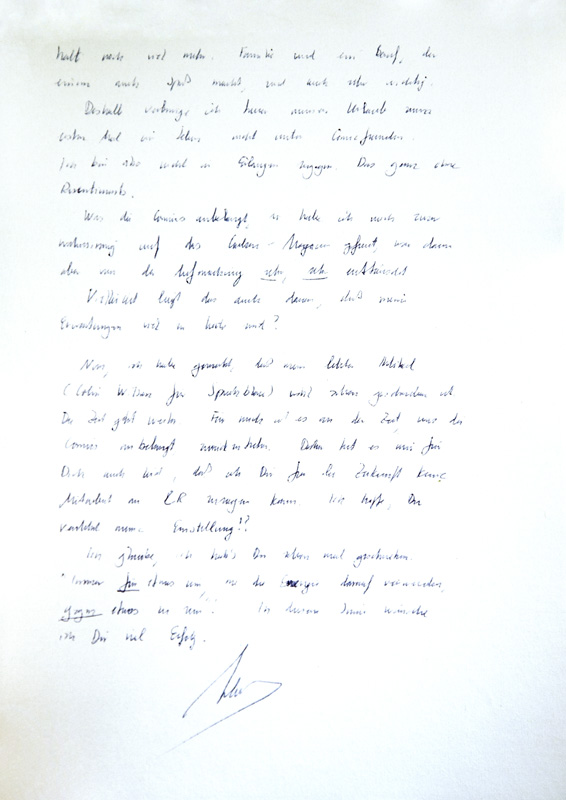 halt noch viel mehr. Familie und ein Beruf, der
einem auch Spaß macht, sind auch sehr wichtig.
Deshalb verbringe ich heuer meinen Urlaub zum
ersten Mal im Leben nicht unter Comicfreunden.
bin also nicht in Erlangen zugegen. Das ganz ohne
Ressentiments.
Was die Comics anbelangt, so habe ich noch zum
auf das Comic-Magazin gefreut, war dann
aber von der Aufmachung sehr, sehr enttäuscht
Vielleicht liegt das auch daran, daß meine
Erwartungen viel zu hoch sind?
Nun, ich habe gemerkt, daß mein letzter Artikel
(Colin Wilson für Sprechblase) wohl schon geschrieben ist
Die Zeit geht weiter. Für mich ist es an der Zeit, was die
Comics anbelangt zurückzustecken. Daher tut es mir für
Dich auch leid, daß ich Dir für die Zukunft keine
Mitarbeit an CR zusagen kann. Ich hoffe, Du
verstehst meine Einstellung!?
Ich glaube, ich hab's Dir schon mal geschrieben.
"Immer für etwas sein, nie die Energie darauf verwenden,
gegen etwas zu sein". In diesem Sinne wünsche
ich Dir viel Erfolg.